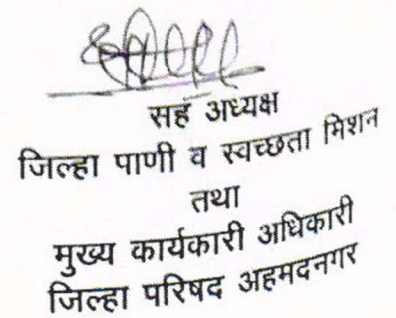 सह अध्यक्ष
जिल्हा पाणी व स्वच्छता मिशन
तथा
मुख्य कार्यकारी अधिकारी
जिल्हा परिषद अहमदनगर